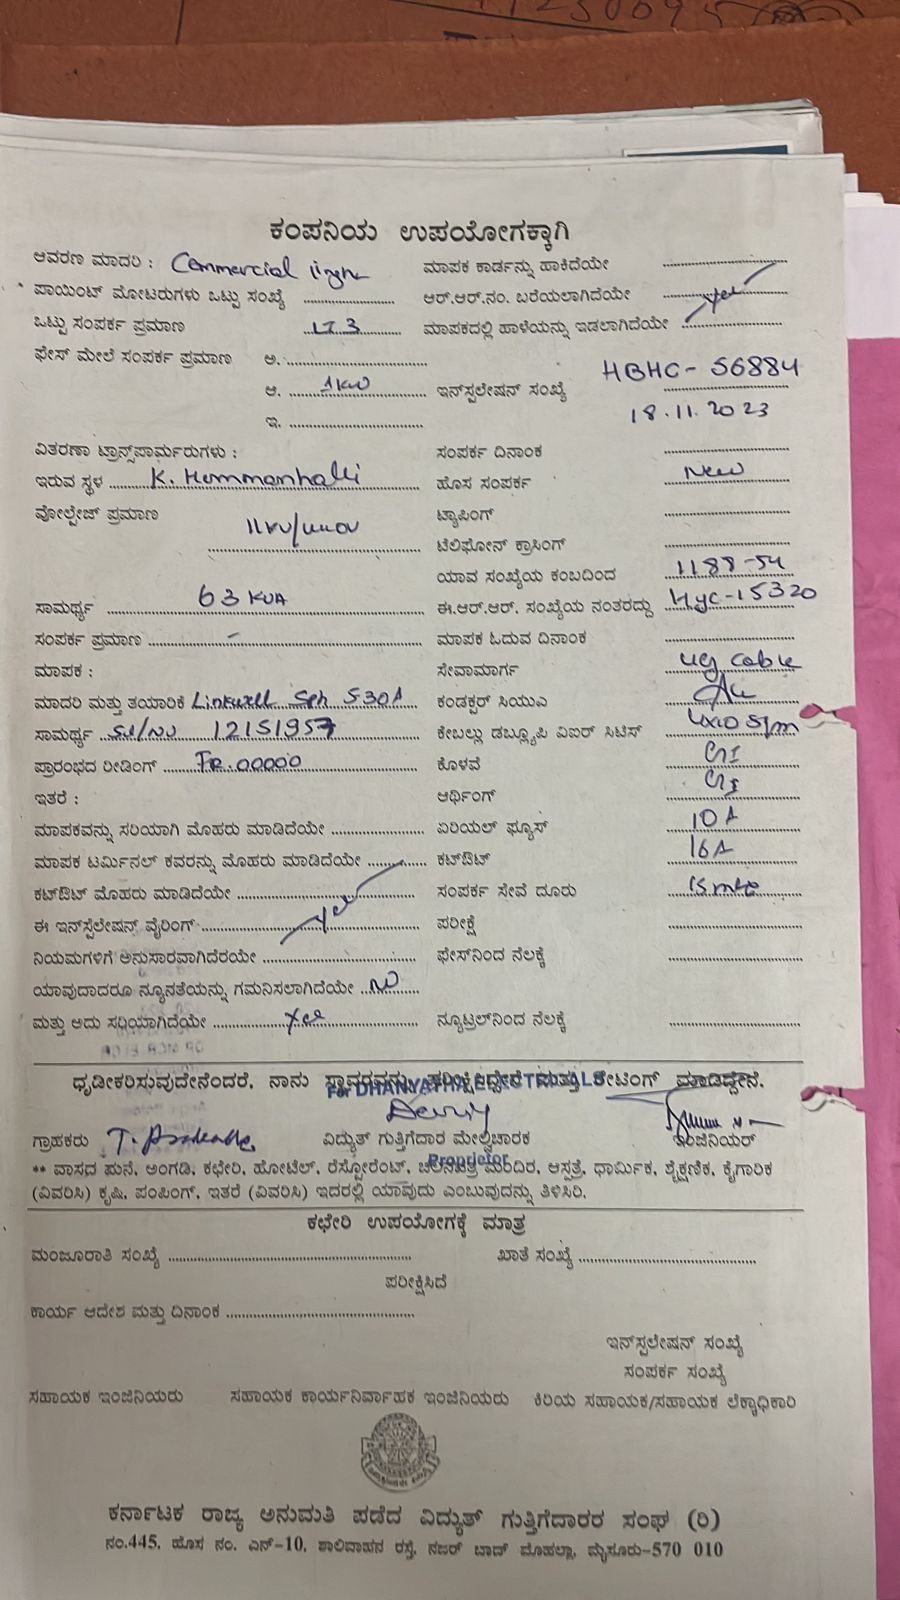 ಕಂಪನಿಯ ಉಪಯೋಗಕ್ಕಾಗಿ
ಆವರಣ ಮಾದರಿ : Commercial ಮಾಪಕ ಕಾರ್ಡನ್ನು ಹಾಕಿದೆಯೇ
ಪಾಯಿಂಟ್ ಮೋಟರುಗಳು ಒಟ್ಟು ಸಂಖ್ಯೆ ಆರ್.ಆರ್.ನಂ. ಬರೆಯಲಾಗಿದೆಯೇ yes
ಒಟ್ಟು ಸಂಪರ್ಕ ಪ್ರಮಾಣ LT 3 ಮಾಪಕದಲ್ಲಿ ಹಾಳೆಯನ್ನು ಇಡಲಾಗಿದೆಯೇ
ಫೇಸ್ ಮೇಲೆ ಸಂಪರ್ಕ ಪ್ರಮಾಣ ಅ.
ಆ. 1KW ಇನ್‌ಸ್ಟಲೇಷನ್ ಸಂಖ್ಯೆ HBHC-56884
ಇ. 18.11.2023
ವಿತರಣಾ ಟ್ರಾನ್ಸ್‌ಪಾರ್ಮರುಗಳು : ಸಂಪರ್ಕ ದಿನಾಂಕ
ಇರುವ ಸ್ಥಳ K. Hemmanhalli ಹೊಸ ಸಂಪರ್ಕ New
ವೋಲ್ಟೇಜ್ ಪ್ರಮಾಣ 11KV/440V ಟ್ಯಾಪಿಂಗ್
ಟೆಲಿಫೋನ್ ಕ್ರಾಸಿಂಗ್
ಯಾವ ಸಂಖ್ಯೆಯ ಕಂಬದಿಂದ 1188-54
ಸಾಮರ್ಥ್ಯ 63 KVA ಈ.ಆರ್.ಆರ್. ಸಂಖ್ಯೆಯ ನಂತರದ್ದು HYC-15320
ಸಂಪರ್ಕ ಪ್ರಮಾಣ - ಮಾಪಕ ಓದುವ ದಿನಾಂಕ
ಮಾಪಕ : ಸೇವಾಮಾರ್ಗ UG cable
ಮಾದರಿ ಮತ್ತು ತಯಾರಿಕೆ Linkwell Sph 5-30A ಕಂಡಕ್ಟರ್ ಸಿಯುಎ
ಸಾಮರ್ಥ್ಯ Sl/No 12151957 ಕೇಬಲ್ಲು ಡಬ್ಲ್ಯೂಪಿ ವಿಐರ್ ಸಿಟಿಸ್ 4x10 Sqm
ಪ್ರಾರಂಭದ ರೀಡಿಂಗ್ IR.00000 ಕೊಳವೆ GI
ಇತರೆ : ಆರ್ಥಿಂಗ್ GI
ಮಾಪಕವನ್ನು ಸರಿಯಾಗಿ ಮೊಹರು ಮಾಡಿದೆಯೇ ಏರಿಯಲ್ ಫ್ಯೂಸ್ 10 A
ಮಾಪಕ ಟರ್ಮಿನಲ್ ಕವರನ್ನು ಮೊಹರು ಮಾಡಿದೆಯೇ ಕಟ್‌ಔಟ್ 16A
ಕಟ್‌ಔಟ್ ಮೊಹರು ಮಾಡಿದೆಯೇ ಸಂಪರ್ಕ ಸೇವೆ ದೂರು 15 mtr
ಈ ಇನ್‌ಸ್ಟಲೇಷನ್ ವೈರಿಂಗ್ yes ಪರೀಕ್ಷೆ
ನಿಯಮಗಳಿಗೆ ಅನುಸಾರವಾಗಿದೆರಯೇ ಫೇಸ್‌ನಿಂದ ನೆಲಕ್ಕೆ
ಯಾವುದಾದರೂ ನ್ಯೂನತೆಯನ್ನು ಗಮನಿಸಲಾಗಿದೆಯೇ No
ಮತ್ತು ಅದು ಸರಿಯಾಗಿದೆಯೇ Yes ನ್ಯೂಟ್ರಲ್‌ನಿಂದ ನೆಲಕ್ಕೆ
ಧೃಡೀಕರಿಸುವುದೇನೆಂದರೆ, ನಾನು ಸ್ಥಾವರವನ್ನು ಪರೀಕ್ಷಿಸಿದ್ದೇನೆ ಮತ್ತು ರೇಟಿಂಗ್ ಮಾಡಿದ್ದೇನೆ.
For DHANYATHA ELECTRICALS
ಗ್ರಾಹಕರು ವಿದ್ಯುತ್ ಗುತ್ತಿಗೆದಾರ ಮೇಲ್ವಿಚಾರಕ ಇಂಜಿನಿಯರ್
Proprietor
** ವಾಸದ ಮನೆ, ಅಂಗಡಿ, ಕಛೇರಿ, ಹೋಟೆಲ್, ರೆಸ್ಟೋರೆಂಟ್, ಚಲನಚಿತ್ರ ಮಂದಿರ, ಆಸ್ಪತ್ರೆ, ಧಾರ್ಮಿಕ, ಶೈಕ್ಷಣಿಕ, ಕೈಗಾರಿಕ
(ವಿವರಿಸಿ) ಕೃಷಿ, ಪಂಪಿಂಗ್, ಇತರೆ (ವಿವರಿಸಿ) ಇದರಲ್ಲಿ ಯಾವುದು ಎಂಬುವುದನ್ನು ತಿಳಿಸಿರಿ.
ಕಛೇರಿ ಉಪಯೋಗಕ್ಕೆ ಮಾತ್ರ
ಮಂಜೂರಾತಿ ಸಂಖ್ಯೆ ಖಾತೆ ಸಂಖ್ಯೆ
ಪರೀಕ್ಷಿಸಿದೆ
ಕಾರ್ಯ ಆದೇಶ ಮತ್ತು ದಿನಾಂಕ
ಇನ್‌ಸ್ಟಲೇಷನ್ ಸಂಖ್ಯೆ
ಸಂಪರ್ಕ ಸಂಖ್ಯೆ
ಸಹಾಯಕ ಇಂಜಿನಿಯರು ಸಹಾಯಕ ಕಾರ್ಯನಿರ್ವಾಹಕ ಇಂಜಿನಿಯರು ಕಿರಿಯ ಸಹಾಯಕ/ಸಹಾಯಕ ಲೆಕ್ಕಾಧಿಕಾರಿ
ಕರ್ನಾಟಕ ರಾಜ್ಯ ಅನುಮತಿ ಪಡೆದ ವಿದ್ಯುತ್ ಗುತ್ತಿಗೆದಾರರ ಸಂಘ (ರಿ)
ನಂ.445, ಹೊಸ ನಂ. ಎನ್-10, ಶಾಲಿವಾಹನ ರಸ್ತೆ, ನಜರ್ ಬಾದ್ ಮೊಹಲ್ಲಾ, ಮೈಸೂರು-570 010